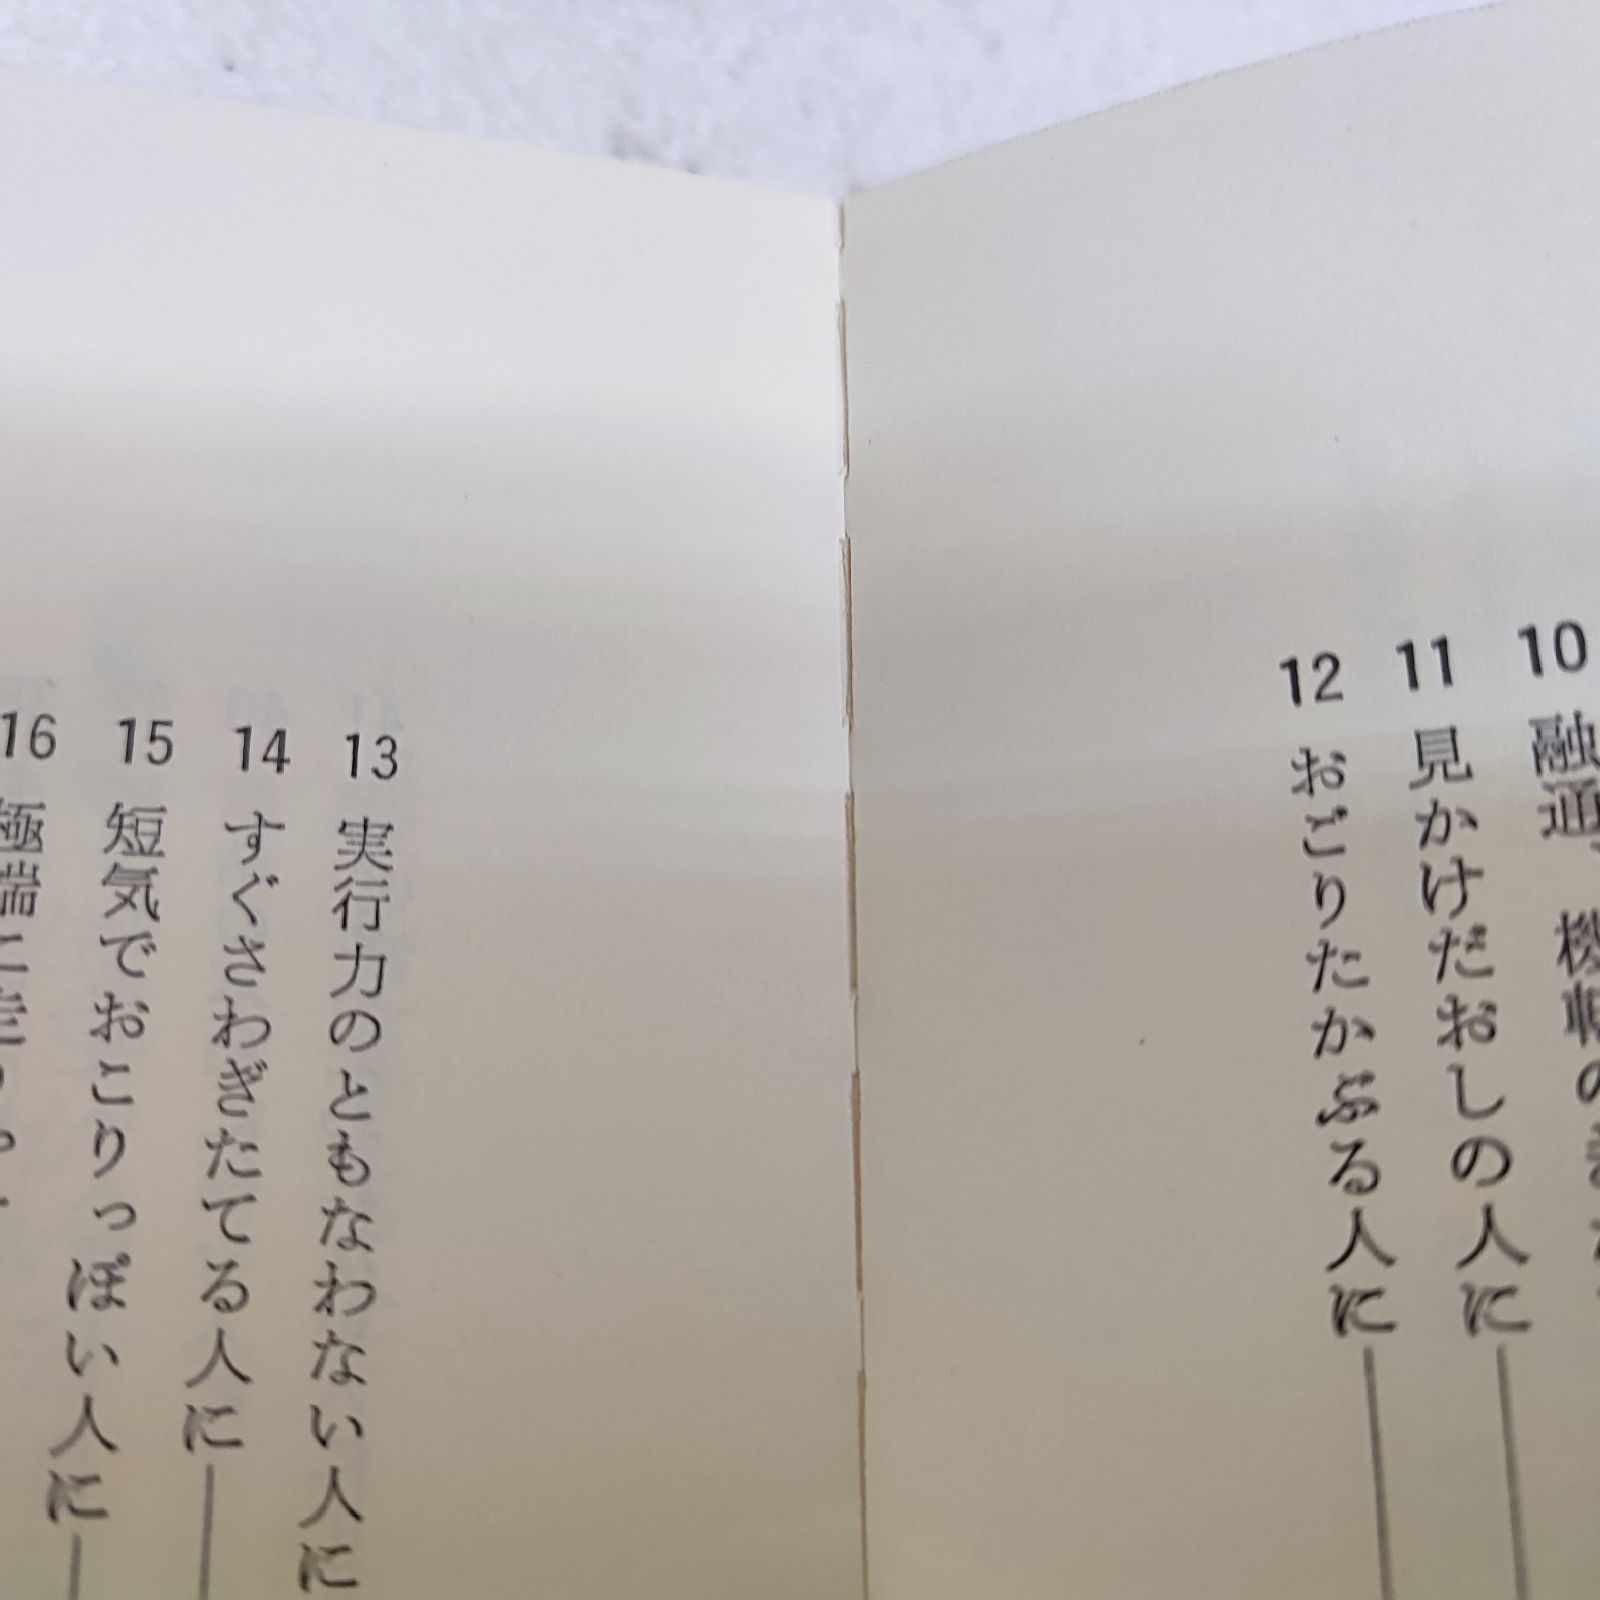 10 融通、機転の
11 見かけだおしの人に
12 おごりたかぶる人に
13 実行力のともなわない人に
14 すぐさわぎたてる人に
15 短気でおこりっぽい人に
16 極端に走り